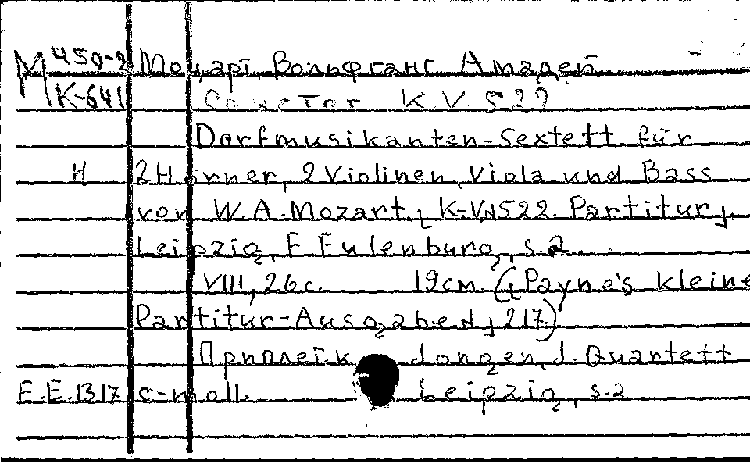 М 450-2 Моцарт, Вольфганг Амадей
К-641 Секстет K.V. 522
Dorfmusikanten-Sextett für
Н 2 Hörner, 2 Violinen, Viola und Bass
von W.A. Mozart, K-V.N522. Partitur,
Leipzig, E. Eulenburg, s.a.
VIII, 26 с. 19 см. (Payne's kleine
Partitur-Ausgabe N 217)
Приплет к Jongen, J. Quartett
E.E. 1317 c-moll. Leipzig, s.a